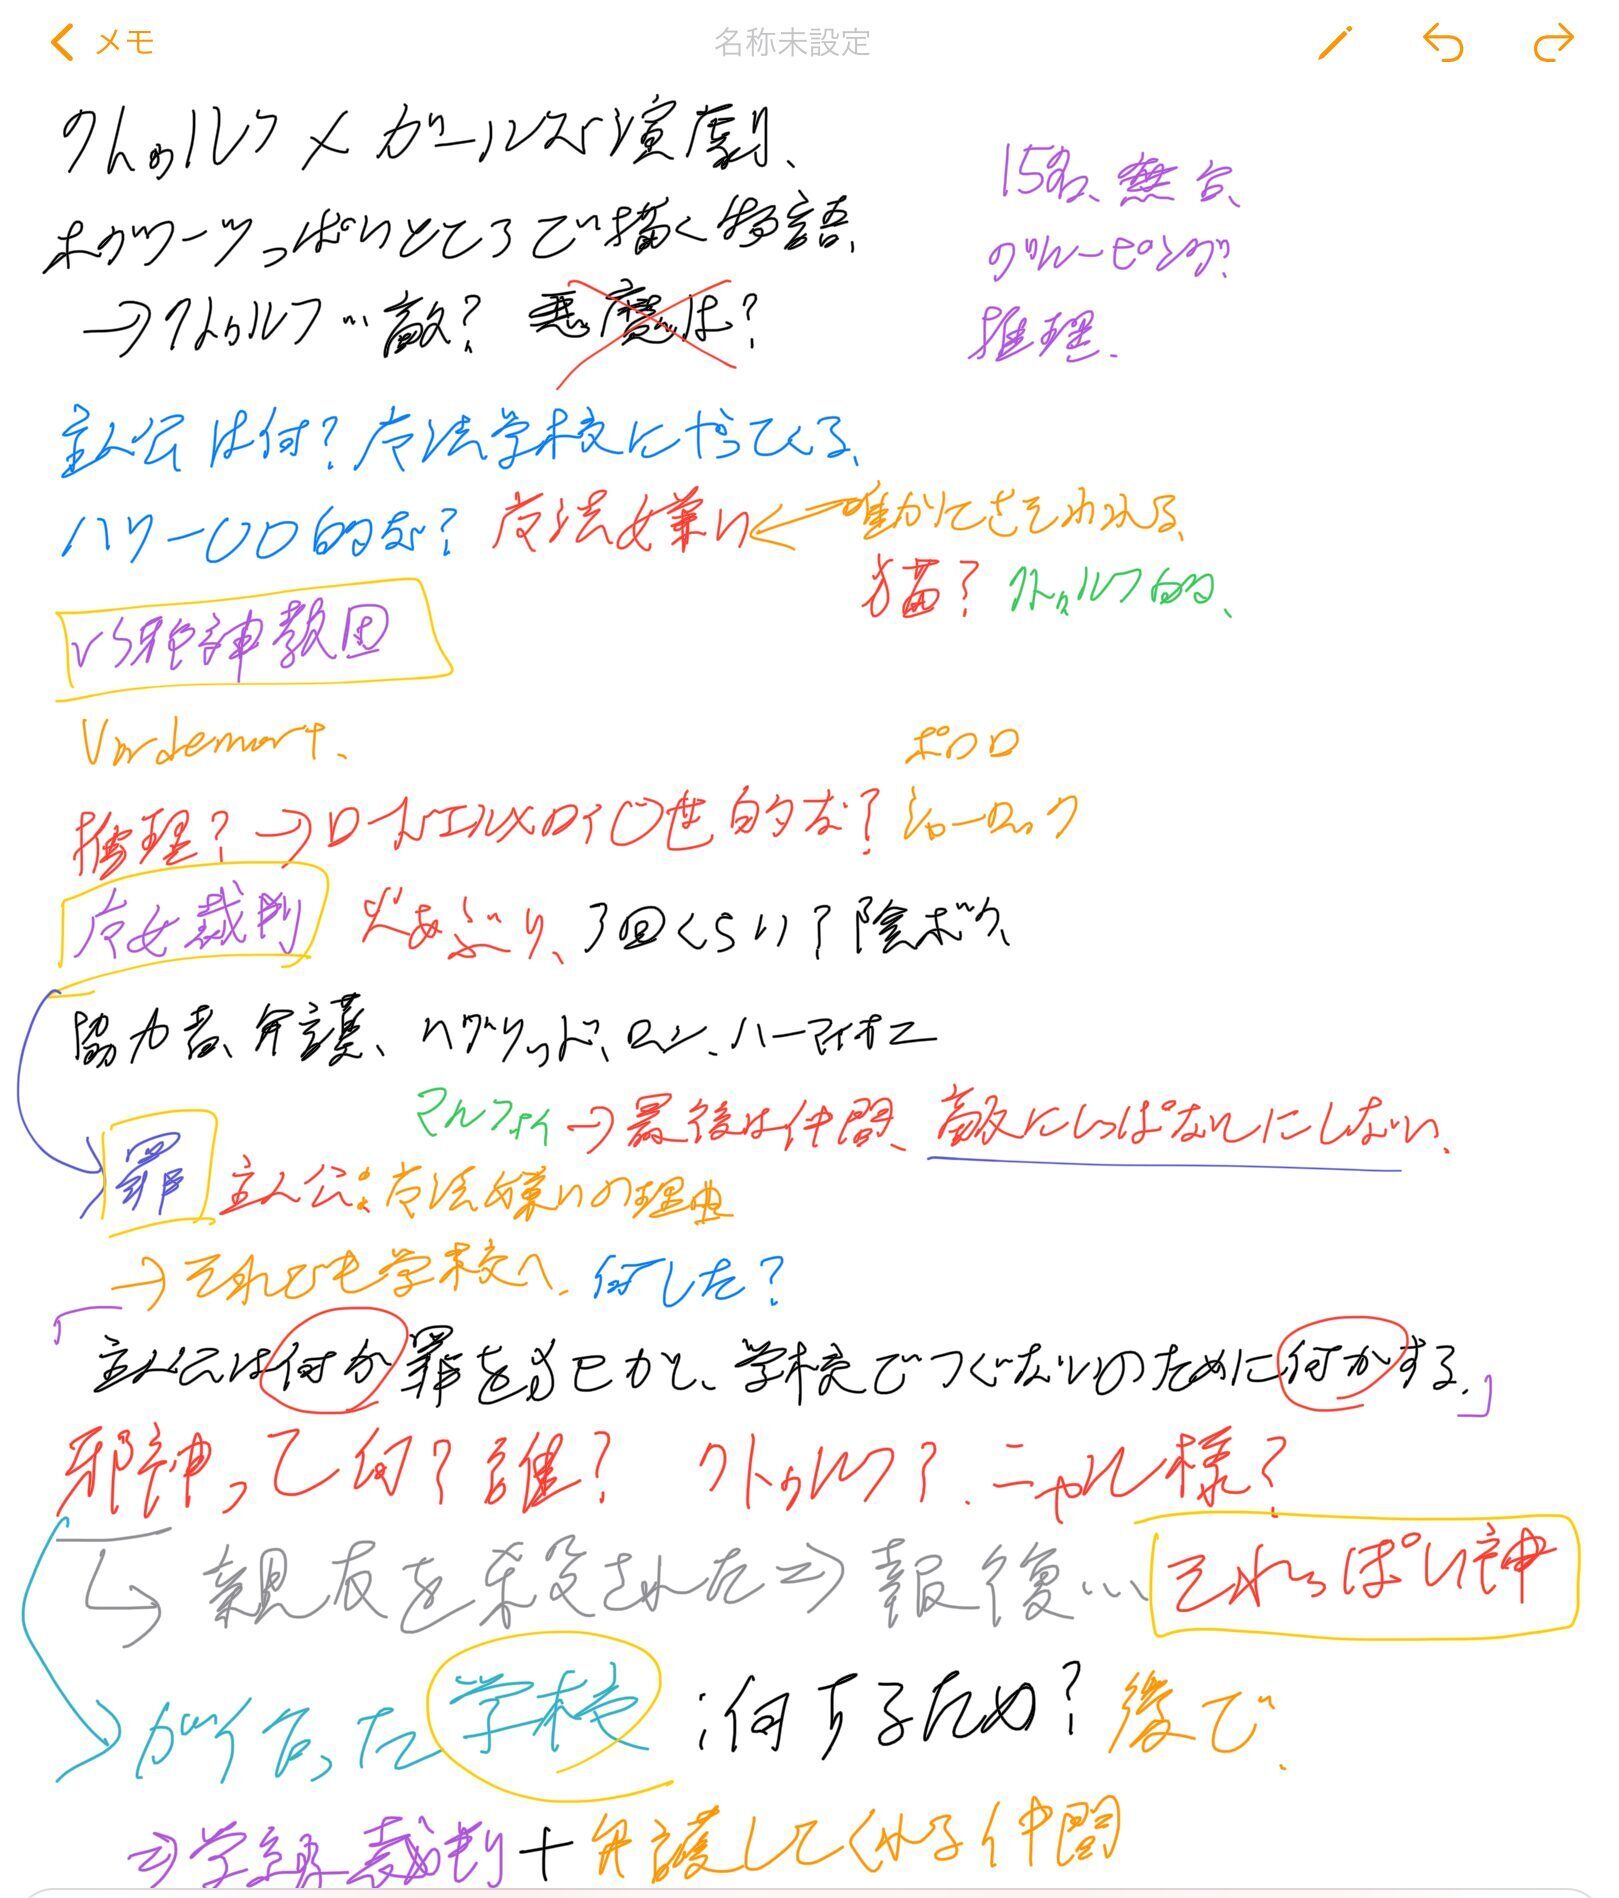 メモ
名称未設定
クトゥルフ×ガールズ演劇、
15名、舞台、
ホグワーツっぽいところで描く物語、
グルーピング、
→クトゥルフ…敵? 悪魔は?
推理、
主人公は何?魔法学校にやってくる、
ハリー〇〇的な? 魔法嫌い ← 誰かにさそわれる、
猫? クトゥルフ的、
vs邪神教団
Vordemort、
ポワロ
推理?→ロードエルメロイ〇世的な? シャーロック
魔女裁判 火あぶり、3回くらい?陰ボク、
協力者、弁護、ハグリッド、ロン、ハーマイオニー
マルフォイ→最後は仲間、敵にしっぱなしにしない、
罪 主人公:魔法嫌いの理由
→それでも学校へ、何した?
「主人公は何か罪を犯かし、学校でつぐないのために何かする。」
邪神って何?誰? クトゥルフ?、ニャル様?
親友を殺された⇒報復… それっぽい神
が作った学校:何するため?後で、
⇒学級裁判+弁護してくれる仲間